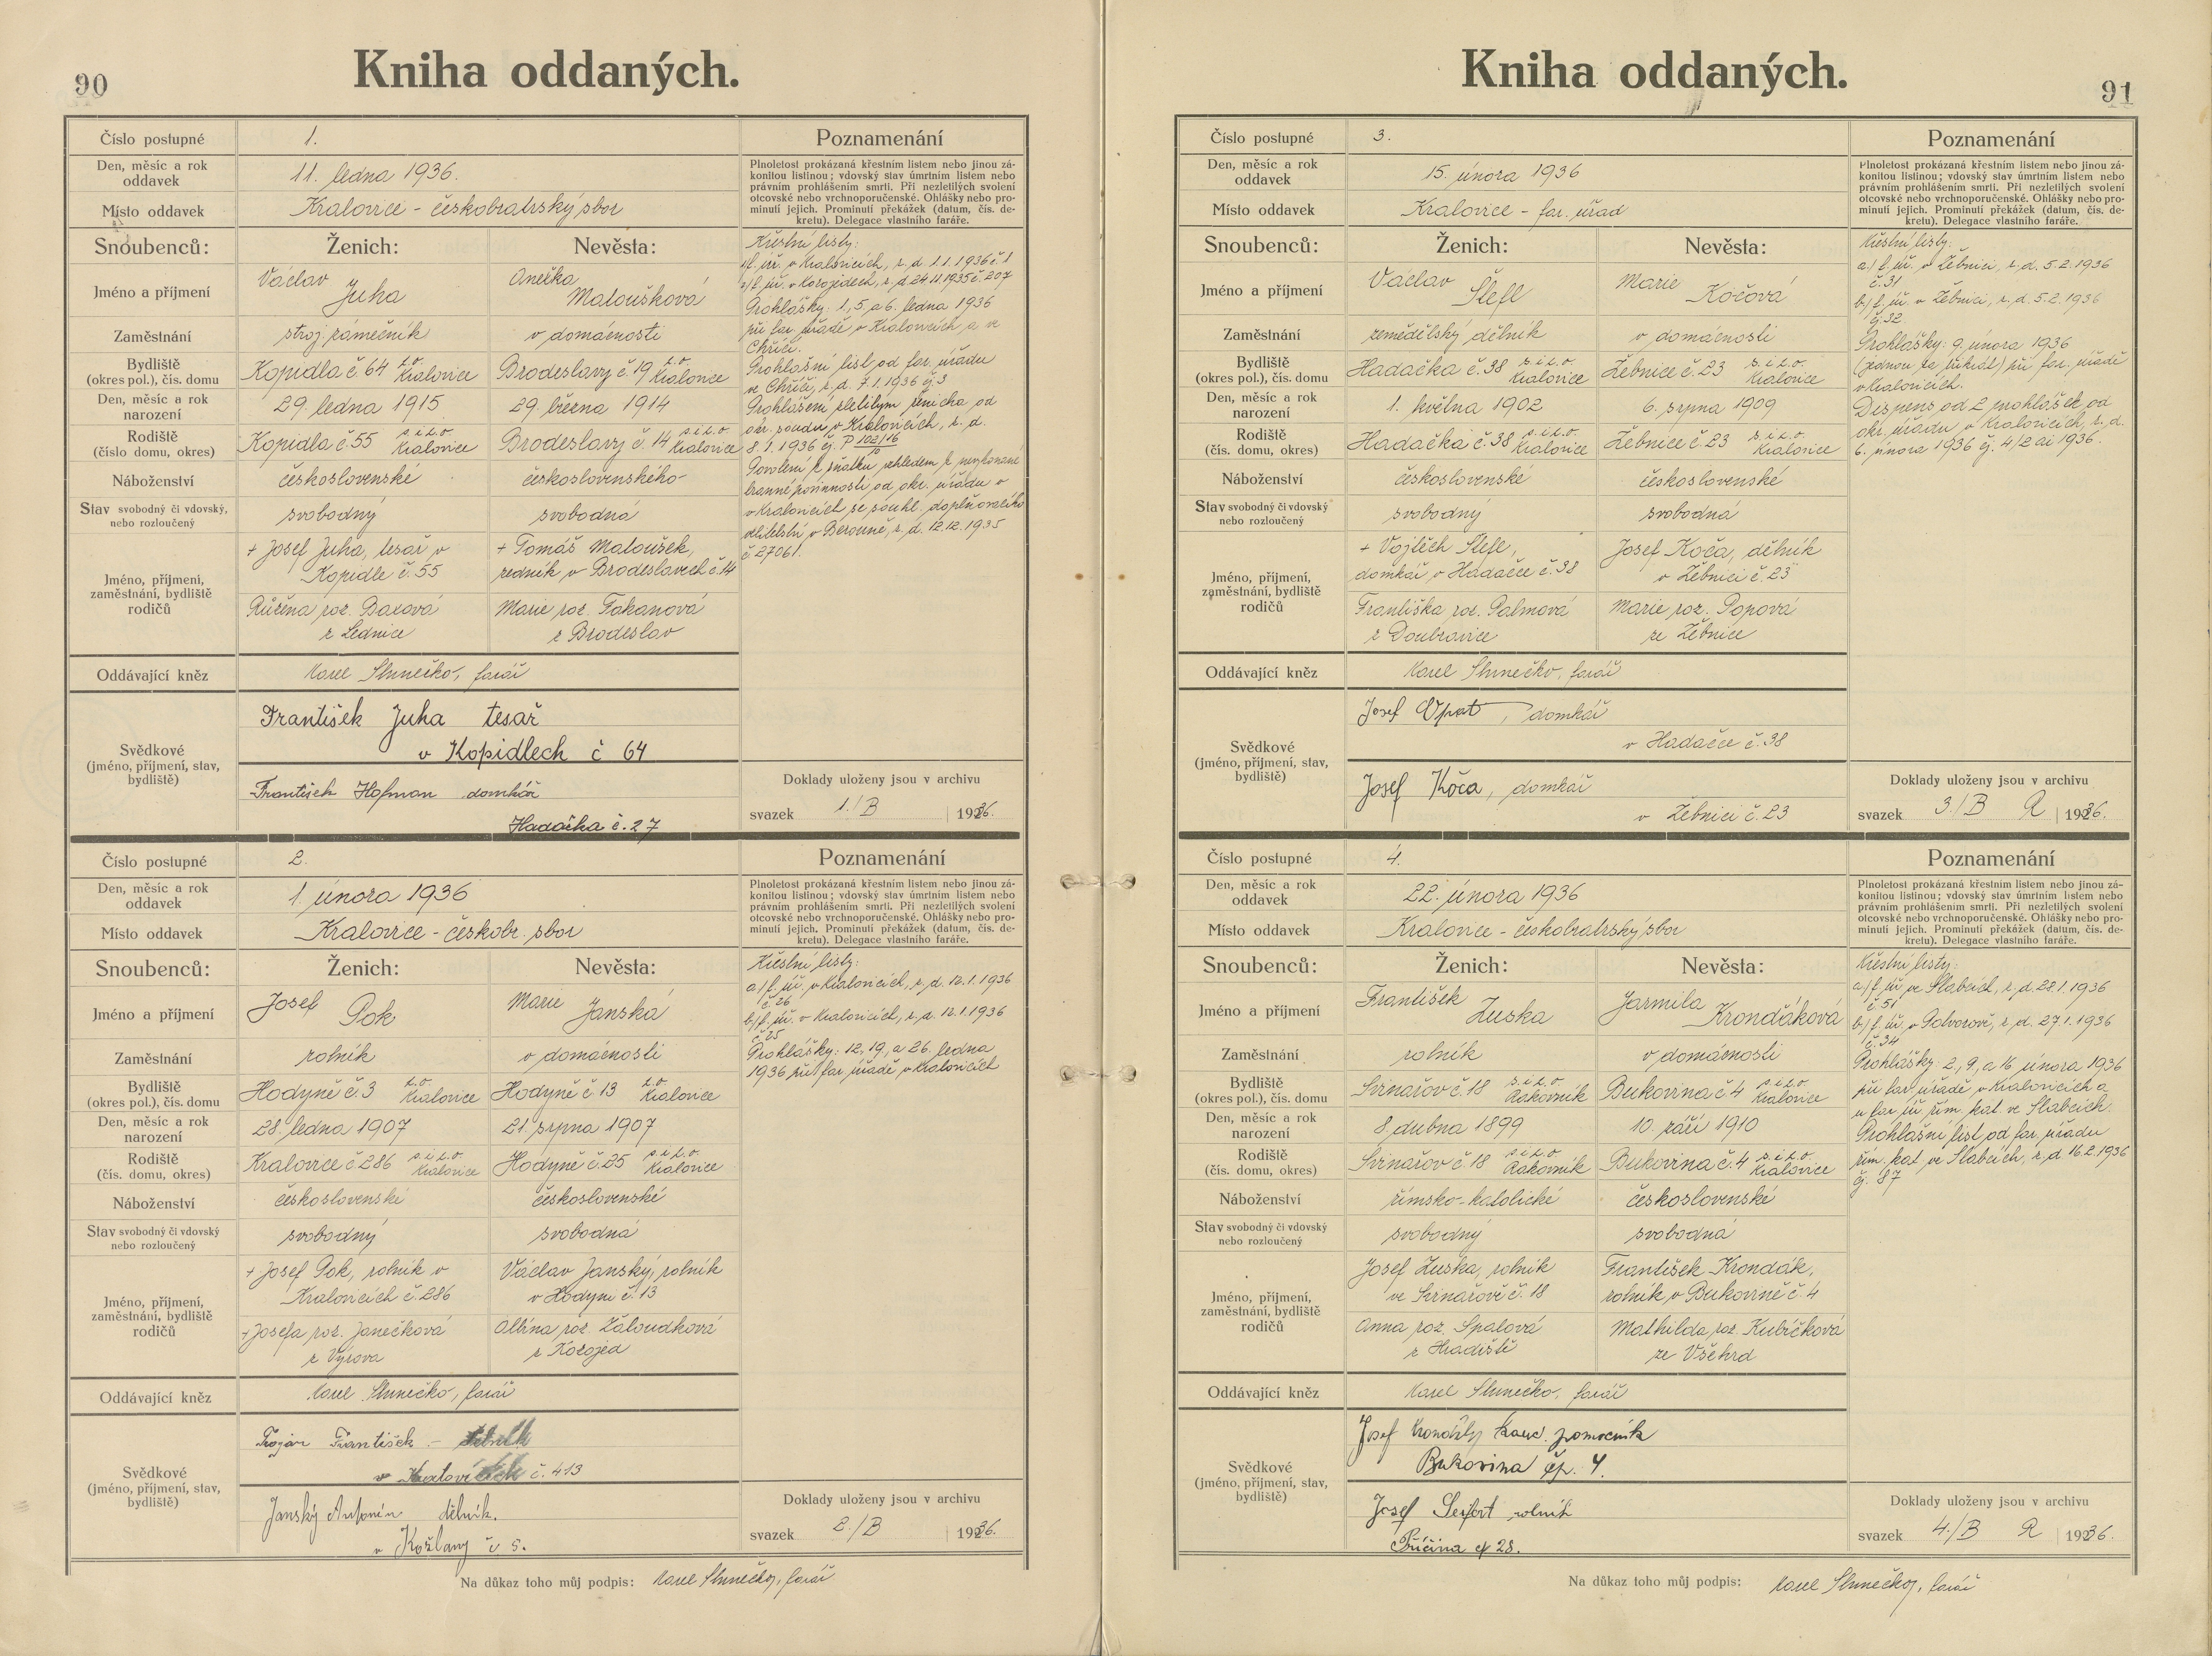 90
Kniha oddaných.
Číslo postupné 1.
Poznamenání
Den, měsíc a rok oddavek 11. ledna 1936.
Místo oddavek Kralovice - českobratrský sbor
Plnoletost prokázaná křestním listem nebo jinou zá-
konitou listinou; vdovský stav úmrtním listem nebo
právním prohlášením smrti. Při nezletilých svolení
otcovské nebo vrchnoporučenské. Ohlášky nebo pro-
minutí jejich. Prominutí překážek (datum, čís. de-
kretu). Delegace vlastního faráře.
Snoubenců: Ženich: Nevěsta:
Jméno a příjmení Václav Juha Anežka Matoušková
Zaměstnání stroj. zámečník v domácnosti
Bydliště (okres pol.), čís. domu Kopidla č. 64 s.o. Kralovice Brodeslavy č. 19 s.o. Kralovice
Den, měsíc a rok narození 29. ledna 1915 29. března 1914
Rodiště (číslo domu, okres) Kopidla č. 55 s. i s. o. Kralovice Brodeslavy č. 14 s. i s. o. Kralovice
Náboženství československé československého
Stav svobodný či vdovský, nebo rozloučený svobodný svobodná
Jméno, příjmení, zaměstnání, bydliště rodičů
+ Josef Juha, tesař v Kopidle č. 55
+ Tomáš Matoušek, zedník v Brodeslavech č. 14
Růžena roz. Baxová z Lednice
Marie roz. Takanová z Brodeslav
Křestní listy:
a/ f. úř. v Kralovicích, z. d. 1.1.1936 č. 1
b/ f. úř. v Kozojedech, z. d. 24.11.1935 č. 207
Prohlášky: 1., 5. a 6. ledna 1936
při far. úřadě v Kralovicích a ve
Chříči.
Prohlášní list od far. úřadu
ve Chříči, z. d. 7.1.1936 čj. 3
Prohlášení zletilým ženicha od
okr. soudu v Kralovicích, z. d.
8.1.1936 čj. P 102/16
10
Povolení k sňatku vzhledem k nevykonané
branné povinnosti od okr. úřadu v
v Kralovicích se souhl. doplňovacího
velitelství v Berouně, z. d. 12.12.1935
č. 27061.
Oddávající kněz Karel Slunečko, farář
Svědkové (jméno, příjmení, stav, bydliště)
František Juha tesař
v Kopidlech č 64
František Hofman domkář
Hadačka č. 27
Doklady uloženy jsou v archivu
svazek 1./B 1936.
Číslo postupné 2.
Poznamenání
Den, měsíc a rok oddavek 1. února 1936
Místo oddavek Kralovice - českobr. sbor
Plnoletost prokázaná křestním listem nebo jinou zá-
konitou listinou; vdovský stav úmrtním listem nebo
právním prohlášením smrti. Při nezletilých svolení
otcovské nebo vrchnoporučenské. Ohlášky nebo pro-
minutí jejich. Prominutí překážek (datum, čís. de-
kretu). Delegace vlastního faráře.
Snoubenců: Ženich: Nevěsta:
Jméno a příjmení Josef Pok Marie Janská
Zaměstnání rolník v domácnosti
Bydliště (okres pol.), čís. domu Hodyně č. 3 s.o. Kralovice Hodyně č 13 s.o. Kralovice
Den, měsíc a rok narození 28. ledna 1907 21. srpna 1907
Rodiště (čís. domu, okres) Kralovice č 286 s. i s. o. Kralovice Hodyně č. 25 s. i s. o. Kralovice
Náboženství československé československé
Stav svobodný či vdovský nebo rozloučený svobodný svobodná
Jméno, příjmení, zaměstnání, bydliště rodičů
+ Josef Pok, rolník v Kralovicích č. 286
Václav Janský, rolník v Hodyni č. 13
+ Josefa roz. Janečková z Výrova
Albína roz. Žáloudková z Kozojed
Křestní listy:
a/ f. úř. v Kralovicích, z. d. 12.1.1936
č 26
b/ f. úř. v Kralovicích, z. d. 12.1.1936
č 25
Prohlášky: 12., 19., a 26. ledna
1936 při far. úřadě v Kralovicích
Oddávající kněz Karel Slunečko, farář
Svědkové (jméno, příjmení, stav, bydliště)
Trojan František -
v č. 413
Janský Antonín dělník.
v Kožlany č 5.
Doklady uloženy jsou v archivu
svazek 2./B 1936.
Na důkaz toho můj podpis: Karel Slunečko, farář
91
Kniha oddaných.
Číslo postupné 3.
Poznamenání
Den, měsíc a rok oddavek 15. února 1936
Místo oddavek Kralovice - far. úřad
Plnoletost prokázaná křestním listem nebo jinou zá-
konitou listinou; vdovský stav úmrtním listem nebo
právním prohlášením smrti. Při nezletilých svolení
otcovské nebo vrchnoporučenské. Ohlášky nebo pro-
minutí jejich. Prominutí překážek (datum, čís. de-
kretu). Delegace vlastního faráře.
Snoubenců: Ženich: Nevěsta:
Jméno a příjmení Václav Štefl Marie Kočová
Zaměstnání zemědělský dělník v domácnosti
Bydliště (okres pol.), čís. domu Hadačka č. 38 s. i s. o. Kralovice Žebnice č. 23 s. i s. o. Kralovice
Den, měsíc a rok narození 1. května 1902 6. srpna 1909
Rodiště (čís. domu, okres) Hadačka č. 38 s. i s. o. Kralovice Žebnice č. 23 s. i s. o. Kralovice
Náboženství československé československé
Stav svobodný či vdovský nebo rozloučený svobodný svobodná
Jméno, příjmení, zaměstnání, bydliště rodičů
+ Vojtěch Štefl, domkář v Hadačce č. 38
Josef Koča, dělník v Žebnici č. 23
Františka roz. Palmová z Doubravice
Marie roz. Popová ze Žebnice
Křestní listy:
a/ f. úř. v Žebnici, z. d. 5.2.1936
č. 31
b/ f. úř. v Žebnici, z. d. 5.2.1936
čj. 32
Prohlášky: 9. února 1936
(jednou za třikrát) při far. úřadě
v Kralovicích.
Dispens od 2 prohlášek od
okr. úřadu v Kralovicích, z. d.
6. února 1936 čj. 4/2 ai 1936.
Oddávající kněz Karel Slunečko, farář
Svědkové (jméno, příjmení, stav, bydliště)
Josef Opat, domkář
v Hadačce č. 38
Josef Kóča, domkář
v Žebnici č. 23
Doklady uloženy jsou v archivu
svazek 3./B R 1936.
Číslo postupné 4.
Poznamenání
Den, měsíc a rok oddavek 22. února 1936
Místo oddavek Kralovice - českobratrský sbor
Plnoletost prokázaná křestním listem nebo jinou zá-
konitou listinou; vdovský stav úmrtním listem nebo
právním prohlášením smrti. Při nezletilých svolení
otcovské nebo vrchnoporučenské. Ohlášky nebo pro-
minutí jejich. Prominutí překážek (datum, čís. de-
kretu). Delegace vlastního faráře.
Snoubenců: Ženich: Nevěsta:
Jméno a příjmení František Zuska Jarmila Krondáková
Zaměstnání rolník v domácnosti
Bydliště (okres pol.), čís. domu Svinařov č. 18 s. i s. o. Rakovník Bukovina č 4 s. i s. o. Kralovice
Den, měsíc a rok narození 8. dubna 1899 10. září 1910
Rodiště (čís. domu, okres) Svinařov č. 18 s. i s. o. Rakovník Bukovina č. 4 s. i s. o. Kralovice
Náboženství římsko-katolické československé
Stav svobodný či vdovský nebo rozloučený svobodný svobodná
Jméno, příjmení, zaměstnání, bydliště rodičů
Josef Zuska, rolník ve Svinařově č. 18
František Krondák, rolník v Bukovině č. 4
Anna roz. Spalová z Hradiště
Mathilda roz. Kubíčková ze Všehrd
Křestní listy:
a/ f. úř. ve Slabcích, z. d. 28.1.1936
č. 51
b/ f. úř. v Potvorově, z. d. 27.1.1936
č. 34
Prohlášky: 2., 9., a 16 února 1936
při far. úřadě v Kralovicích a
u far. úř. řím. kat. ve Slabcích.
Prohlášní list od far. úřadu
řím. kat. ve Slabcích, z. d 16.2.1936
čj. 87
Oddávající kněz Karel Slunečko, farář
Svědkové (jméno, příjmení, stav, bydliště)
Josef kanc. pomocník
Bukovina čp. 4.
Josef Seifert rolník
Příčina čp 28.
Doklady uloženy jsou v archivu
svazek 4./B R 1936.
Na důkaz toho můj podpis: Karel Slunečko, farář